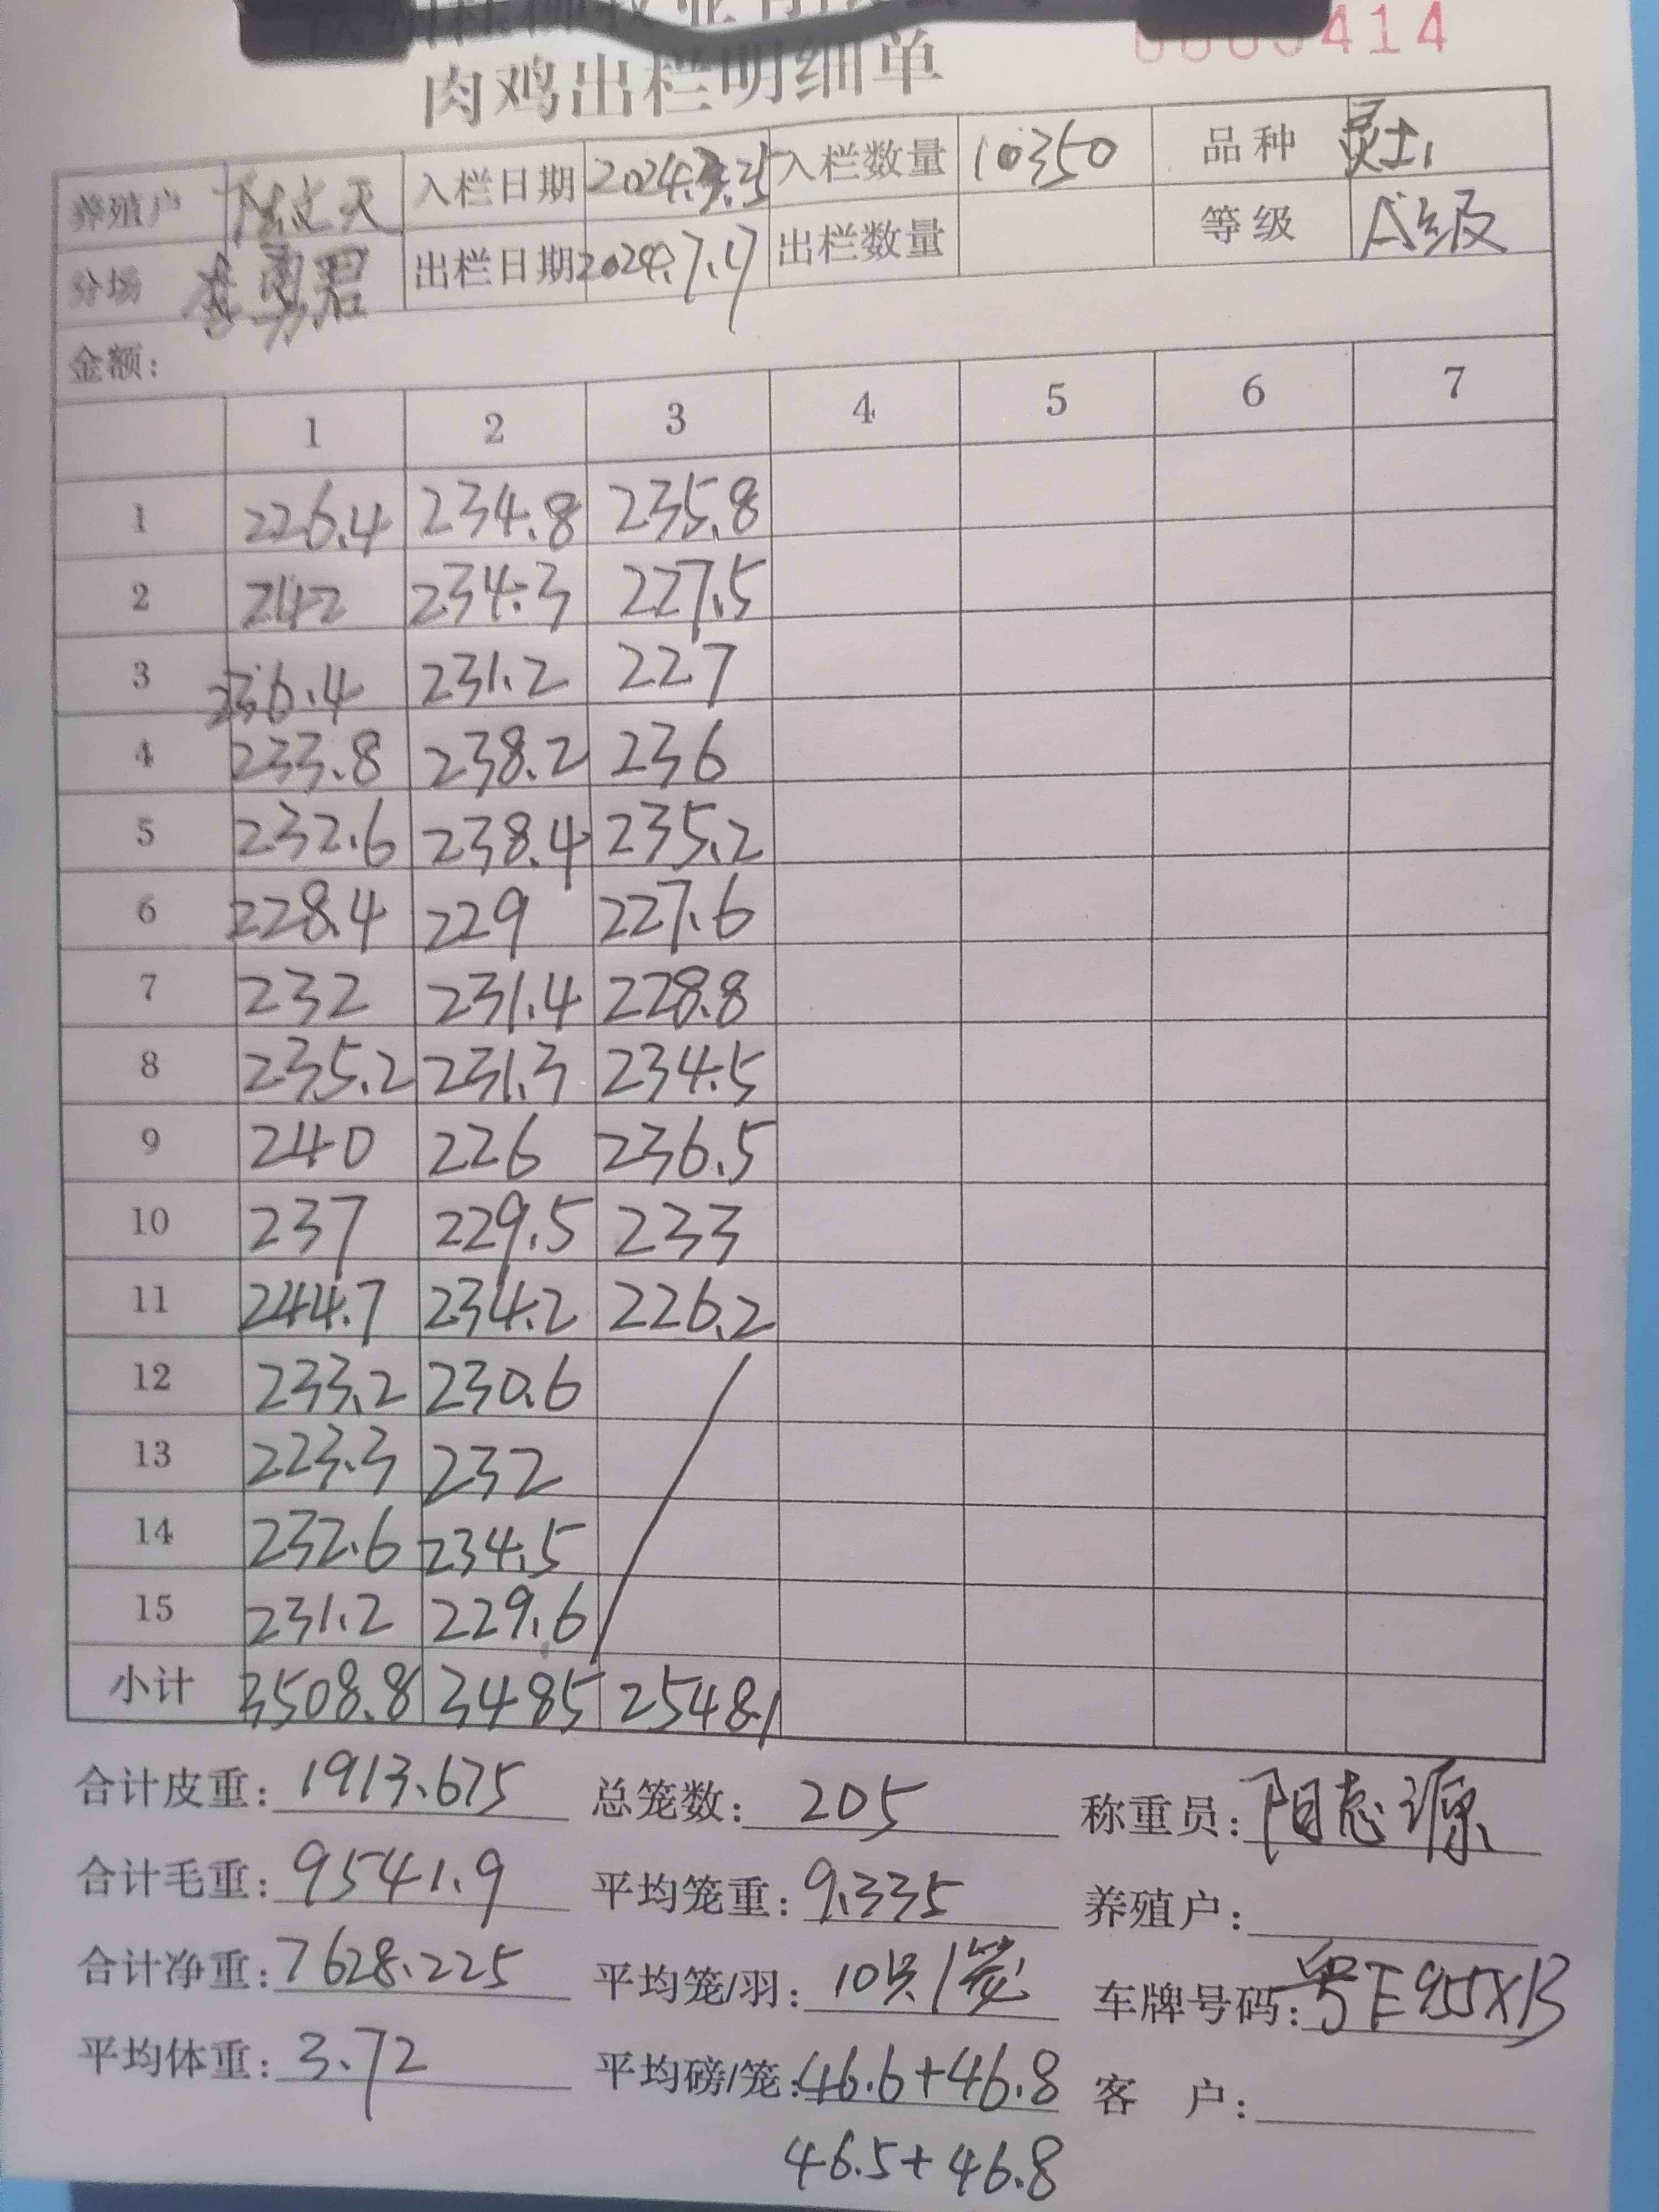 414
肉鸡出栏明细单
养殖户 陆文天 入栏日期 2024. 入栏数量 10350 品种 灵土1
分场 李勇君 出栏日期 2024.7.17 出栏数量 等级 A级
金额:
1 2 3 4 5 6 7
1 226.4 234.8 235.8
2 242 234.3 227.5
3 236.4 231.2 227
4 233.8 238.2 236
5 232.6 238.4 235.2
6 228.4 229 227.6
7 232 231.4 228.8
8 235.2 231.3 234.5
9 240 226 236.5
10 237 229.5 233
11 244.7 234.2 226.2
12 233.2 230.6
13 223.3 232
14 232.6 234.5
15 231.2 229.6
小计 3508.8 3485 2548.1
合计皮重: 1913.675 总笼数: 205 称重员: 阳志源
合计毛重: 9541.9 平均笼重: 9.335 养殖户:
合计净重: 7628.225 平均笼/羽: 10只/笼 车牌号码: 粤E955X13
平均体重: 3.72 平均磅/笼: 46.6+46.8 客 户:
46.5+46.8